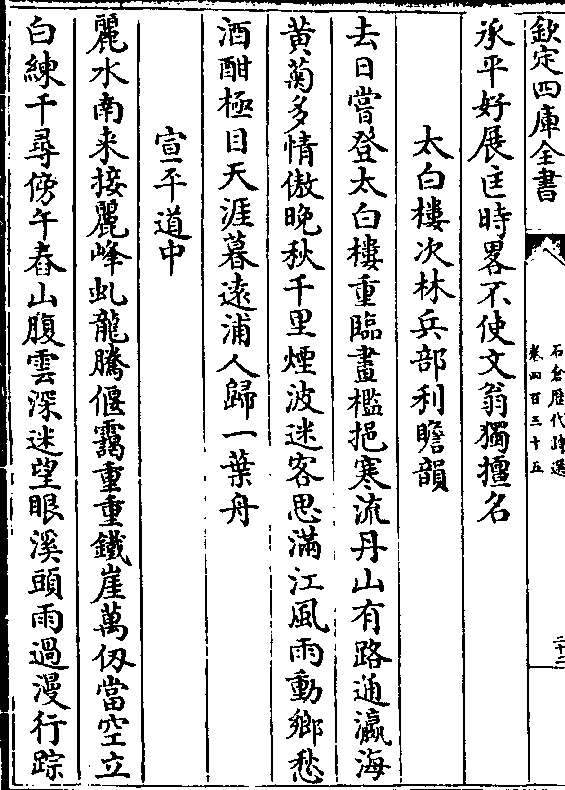 欽定四庫全書
石倉歷代詩選
卷四百三十五
二十三
承平好展匡時畧不使文翁獨擅名
太白樓次林兵部利瞻韻
去日嘗登太白樓重臨畫檻挹寒流丹山有路通瀛海
黄菊多情傲晚秋千里煙波迷客思滿江風雨動鄉愁
酒酣極目天涯暮遠浦人歸一葉舟
宣平道中
麗水南来接麗峰虬龍騰偃靄重重鐵崖萬仭當空立
白練千尋傍午舂山腹雲深迷望眼溪頭雨過漫行踪